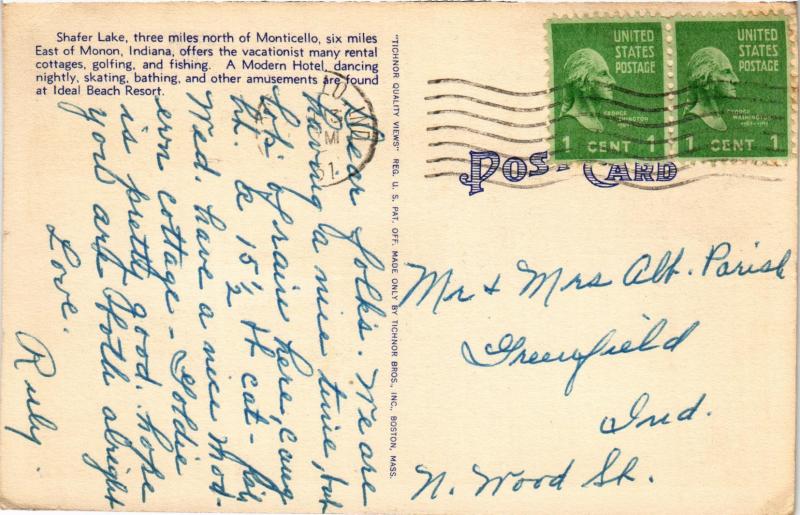 Shafer Lake, three miles north of Monticello, six miles
East of Monon, Indiana, offers the vacationist many rental
cottages, golfing, and fishing. A Modern Hotel, dancing
nightly, skating, bathing, and other amusements are found
at Ideal Beach Resort.
Dear folks. We are
having a nice time, but
lots of rain here, caug
ht. a 15½ # cat-fish
Wed. have a nice Mod-
ern cottage - Goldie
is pretty good. hope
you are both alright
Love.
Ruby.
"TICHNOR QUALITY VIEWS" REG. U. S. PAT. OFF. MADE ONLY BY TICHNOR BROS., INC., BOSTON, MASS.
UNITED
STATES
POSTAGE
GEORGE
WASHINGTON
1 CENT 1
UNITED
STATES
POSTAGE
GEORGE
WASHINGTON
1 CENT 1
POST CARD
Mr & Mrs Alb. Parish
Greenfield
Ind.
N. Wood St.